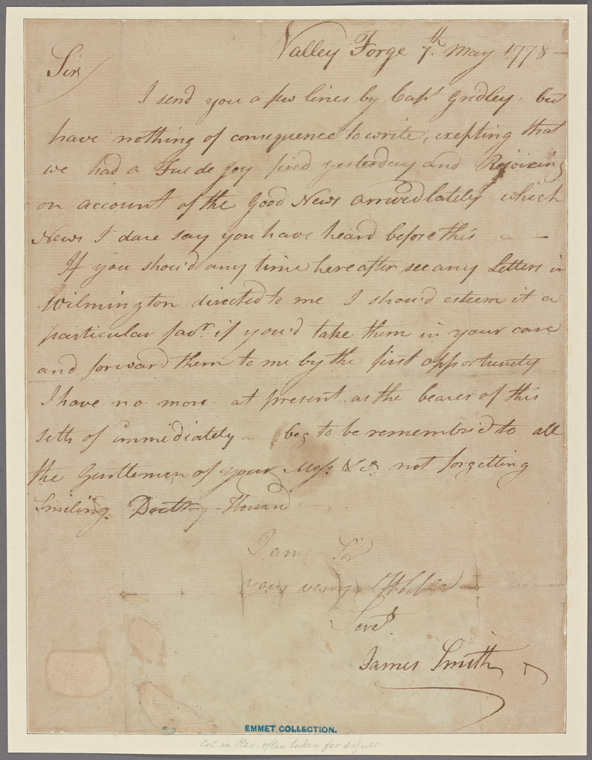 Valley Forge 7th. May 1778 —
Sir
I send you a few lines by Capt Gridley. but
have nothing of consequence to write, exepting that
we had a Fue de Joy fired yesterday and Rejoicing
on account of the Good News arrived lately which
News I dare say you have heard before this —
If you shou'd any time hereafter see any Letters in
Wilmington directed to me I shou'd esteem it a
particular favr. if you'd take them in your care
and forward them to me by the first opportunity
I have no more at present as the bearer of this
setts of immediately — beg to be remembred to all
the Gentlemen of your Mess &c. not forgetting
Smiling
I am Sir
your very
Servt.
James Smith
EMMET COLLECTION.
Col in Rev. often taken for signer